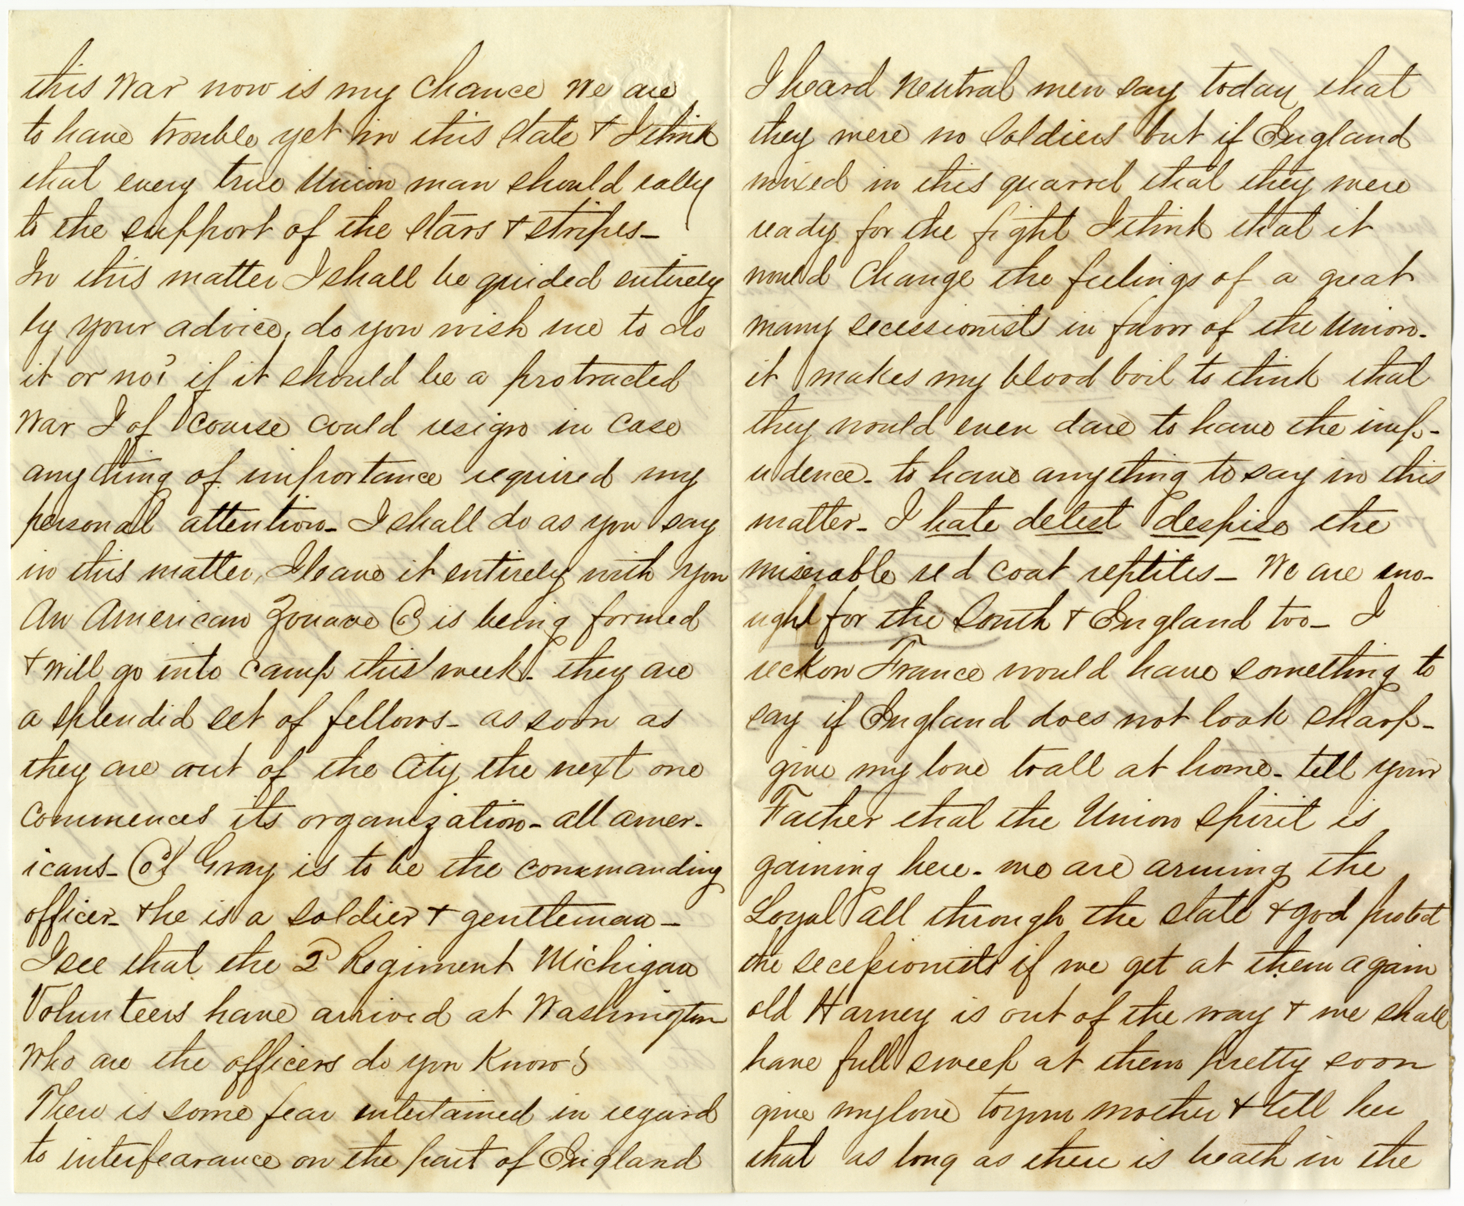 this War now is my chance We are
to have trouble yet in this State & I think
that every true Union man should rally
to the support of the Stars & stripes_
In this matter I shall be guided entirely
by your advice, do you wish me to do
it or no? if it should be a protracted
War I of course could resign in case
anything of importance required my
personal attention_ I shall do as you say
in this matter, I leave it entirely with you
An American Zouave Co is being formed
& will go into camp this week_ they are
a splendid set of fellows_ as soon as
they are out of the City the next one
commences its organization_ all amer-
icans_ Col Gray is to be the commanding
officer_ & he is a soldier & gentleman_
I see that the 2d Regiment Michigan
Volunteers have arrived at Washington
Who are the officers do you know?
There is some fear entertained in regard
to interfearance on the part of England
I heard Neutral men say today that
they were no Soldiers but if England
mixed in this quarrel that they were
ready for the fight I think that it
would Change the feelings of a great
many secessionists in favor of the Union.
it makes my blood boil to think that
they would even dare to have the imp-
udence_ to have anything to say in this
matter_ I hate detest despise the
miserable red coat reptiles_ We are eno-
ught for the South & England too_ I
reckon France would have something to
say if England does not look sharp_
give my love to all at home_ tell your
Father that the Union Spirit is
gaining here_ we are arming the
Loyal all through the state & god protect
the secessionists if we get at them again
old Harney is out of the way & we shall
have full sweep at them pretty soon
give my love to your mother & tell her
that as long as there is breath in the